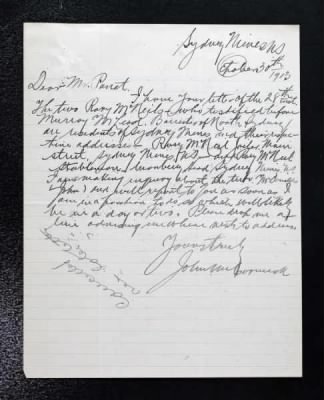 Sydney Mines NS
October 30th
1913
Dear Mr.
I have your letter of the 28th inst.
The two Rory McNeils who testified before
Murray McLeod, Barrister of North Sydney
are residents of Sydney Mines and their respec-
tive addresses Rory McNeil Main
street, Sydney Mines NS Rory McNeil
Sydney Mines NS
I am making inquiry about the two
John and will report to you as soon as I
am in a position to do so which will likely
be in a day or two. Please drop me a
line advising me where next to address
Yours truly
John McCormick